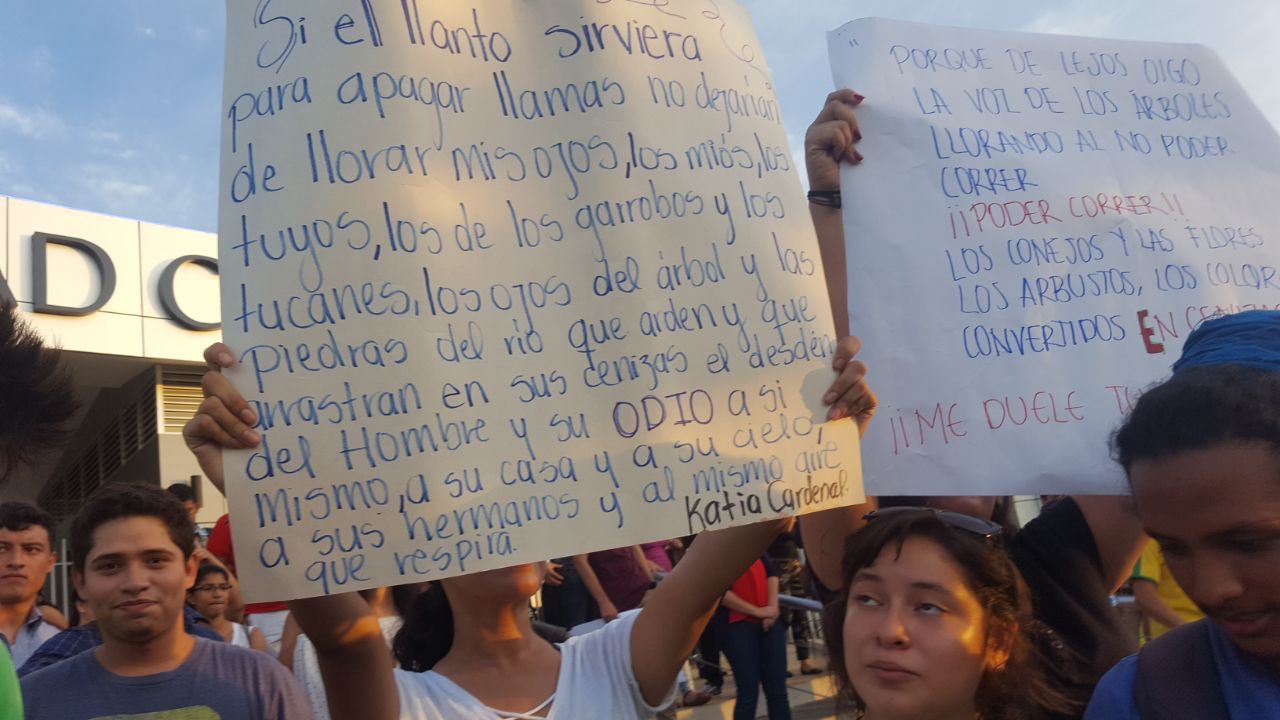 DC
Si el llanto sirviera
para apagar llamas no dejarían
de llorar mis ojos, los miós, los
tuyos, los de los garrobos y los
tucanes, los ojos del árbol y las
piedras del rió que arden y que
arrastran en sus cenizas el desdén
del Hombre y su ODIO a si
mismo, a su casa y a su cielo,
a sus hermanos y al mismo aire
que respira.
Katia Cardenal.
"PORQUE DE LEJOS OIGO
LA VOZ DE LOS ÁRBOLES
LLORANDO AL NO PODER
CORRER
¡¡PODER CORRER!!
LOS CONEJOS Y LAS FLORES
LOS ARBUSTOS, LOS COLOR
CONVERTIDOS EN
¡¡ME DUELE